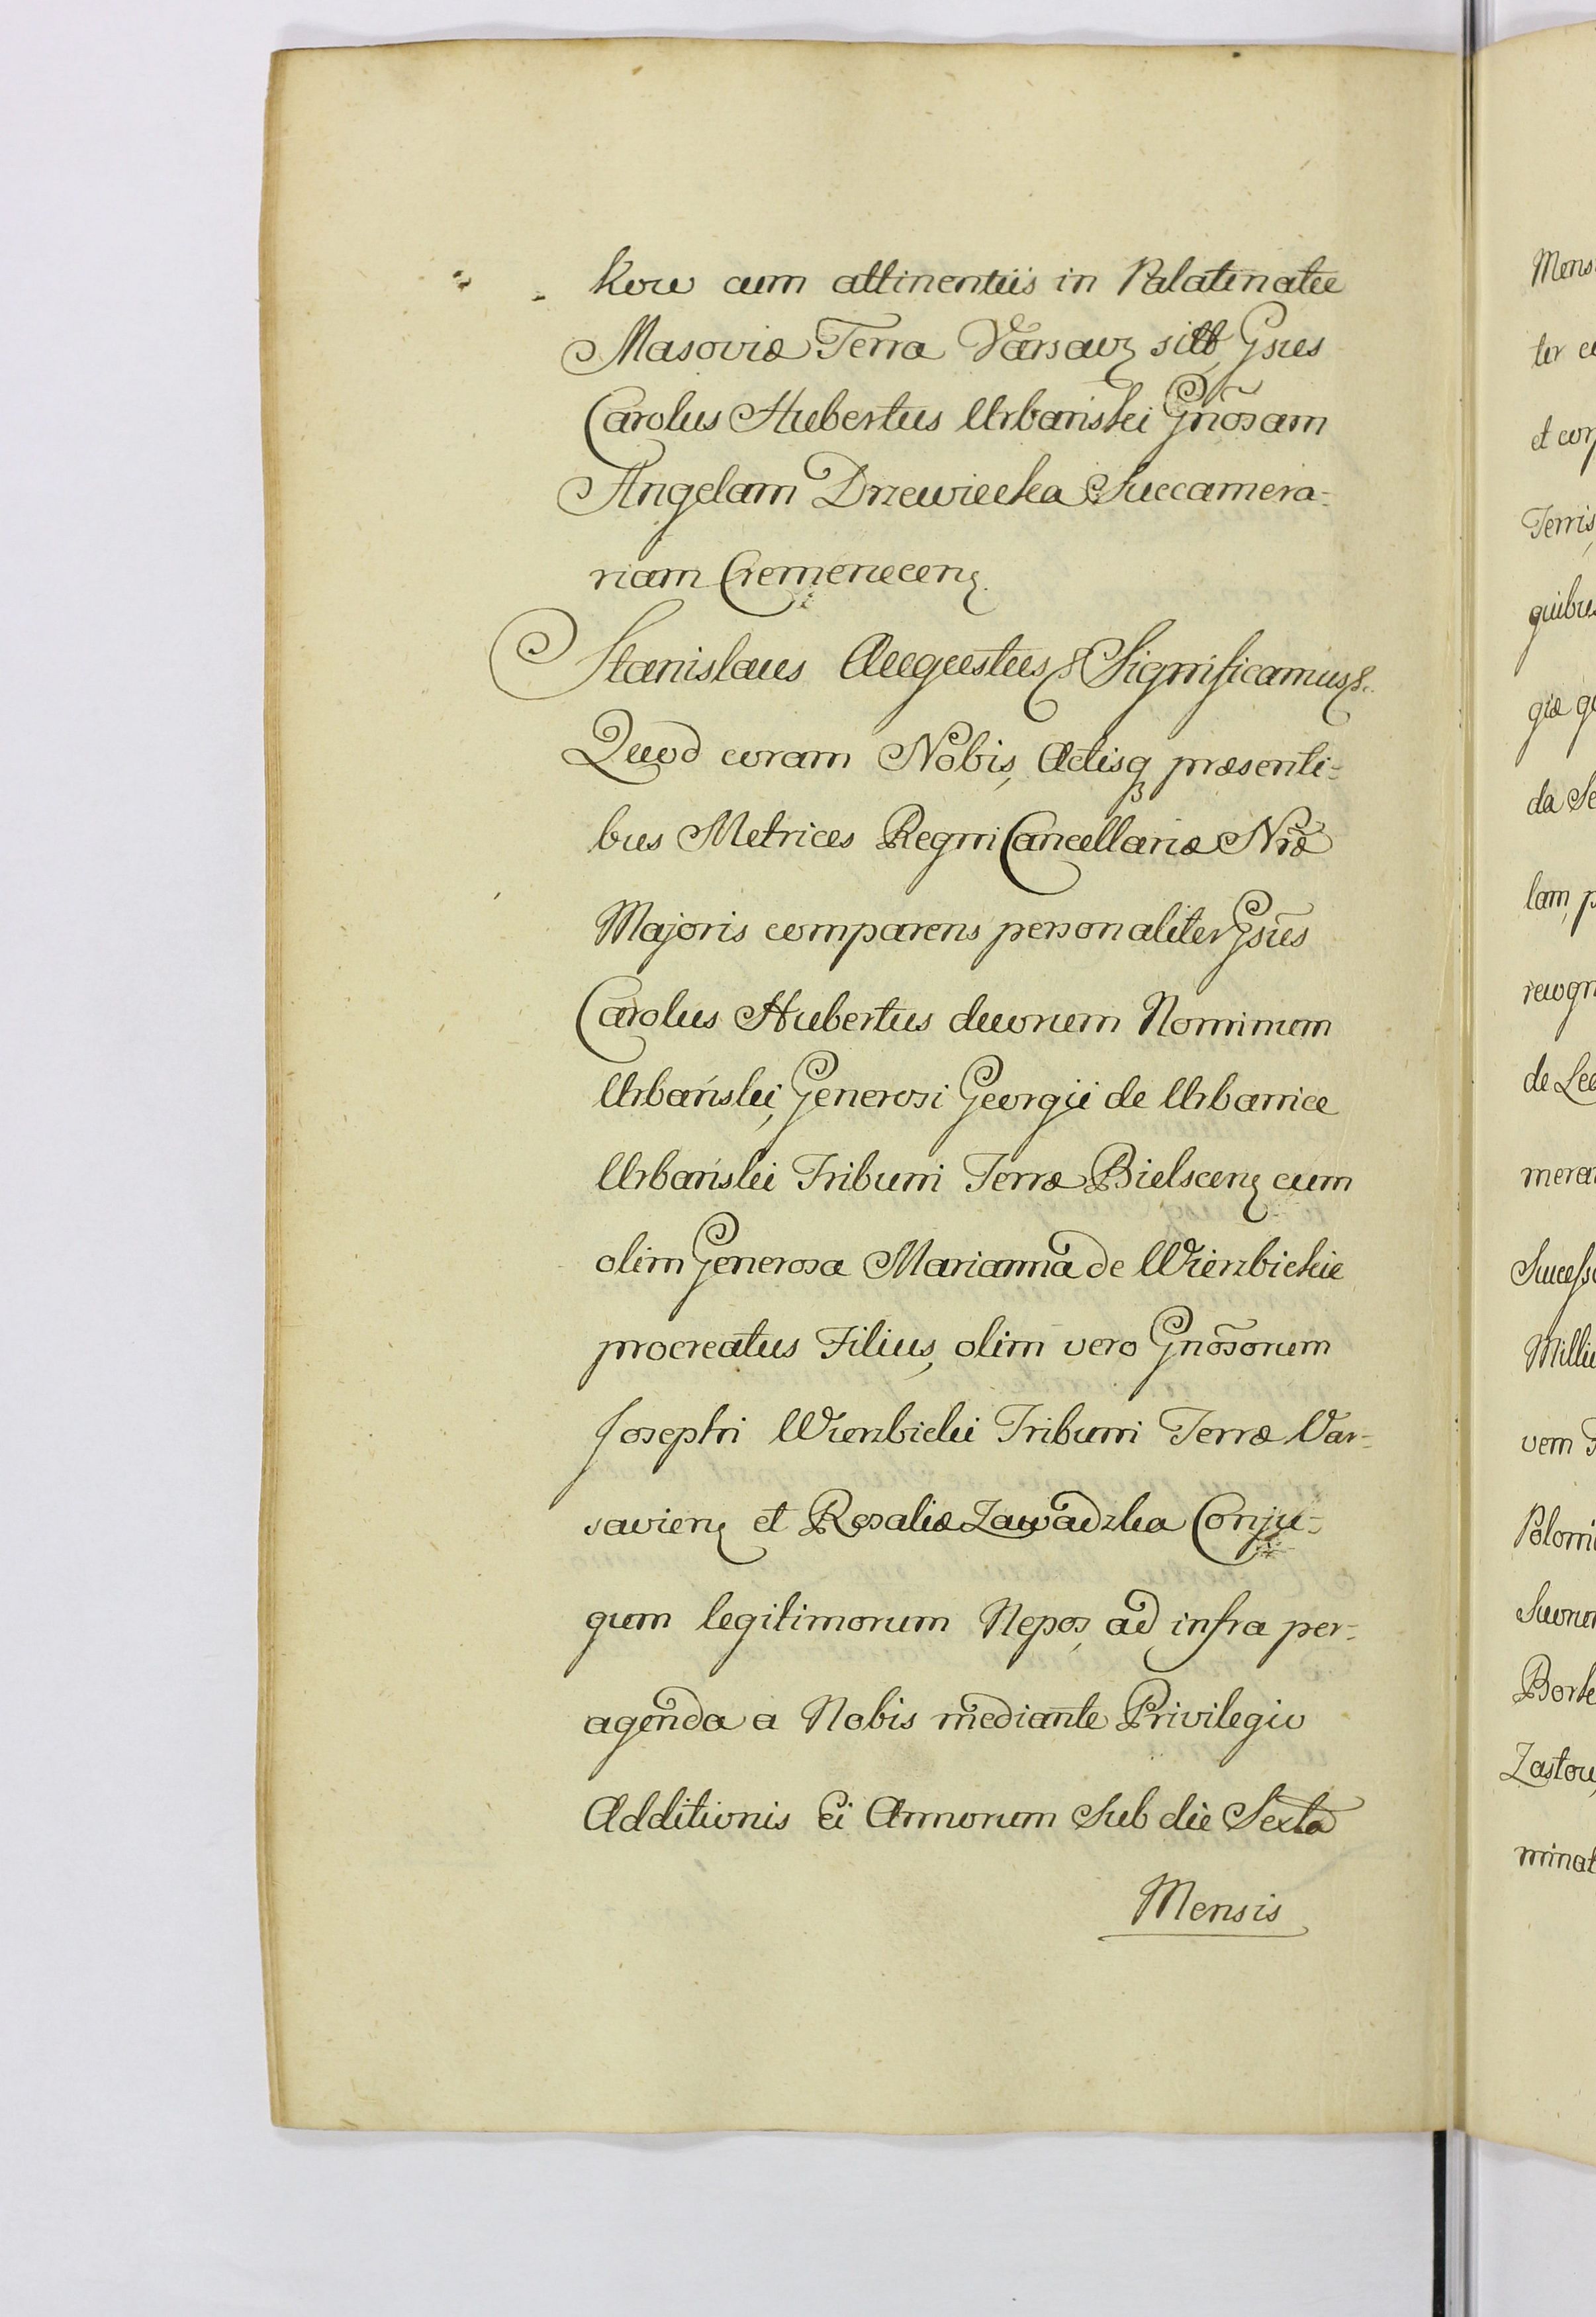 kow cum attinentiis in Palatinatu
Masoviæ Terra Varsavꝫ sitꝫ Gsus
Carolus Hubertus Urbański Gnõsam
Angelam Drzewiecka Succamera-
riam Cremenecenꝫ
Stanislaus Augustus & Significamus &.
Quod coram Nobis, Actisqꝫ præsenti-
bus Metrices Regni Cancellariæ Nræ
Majoris comparens personaliter Gsũs
Carolus Hubertus duorum Nominum
Urbański, Generosi Georgii de Urbanice
Urbański Tribuni Terræ Bielscenꝫ cum
olim Generosa Marianna de Wierzbickie
procreatus Filius, olim vero Gnõsorum
Josephi Wierzbicki Tribuni Terræ Var-
savienꝫ et Rosaliæ Zawadzka Conju-
gum legitimorum Nepos, ad infra per-
agenda a Nobis mediante Privilegio
Additionis Ei Annorum sub die Sexta
Mensis
Mens
ter
et
Terris
quibus
giæ
da Se
lam, p
recogn
de
mera
Success
Millu
vem
Poloni
Suorum
Bork
Zastow
minat